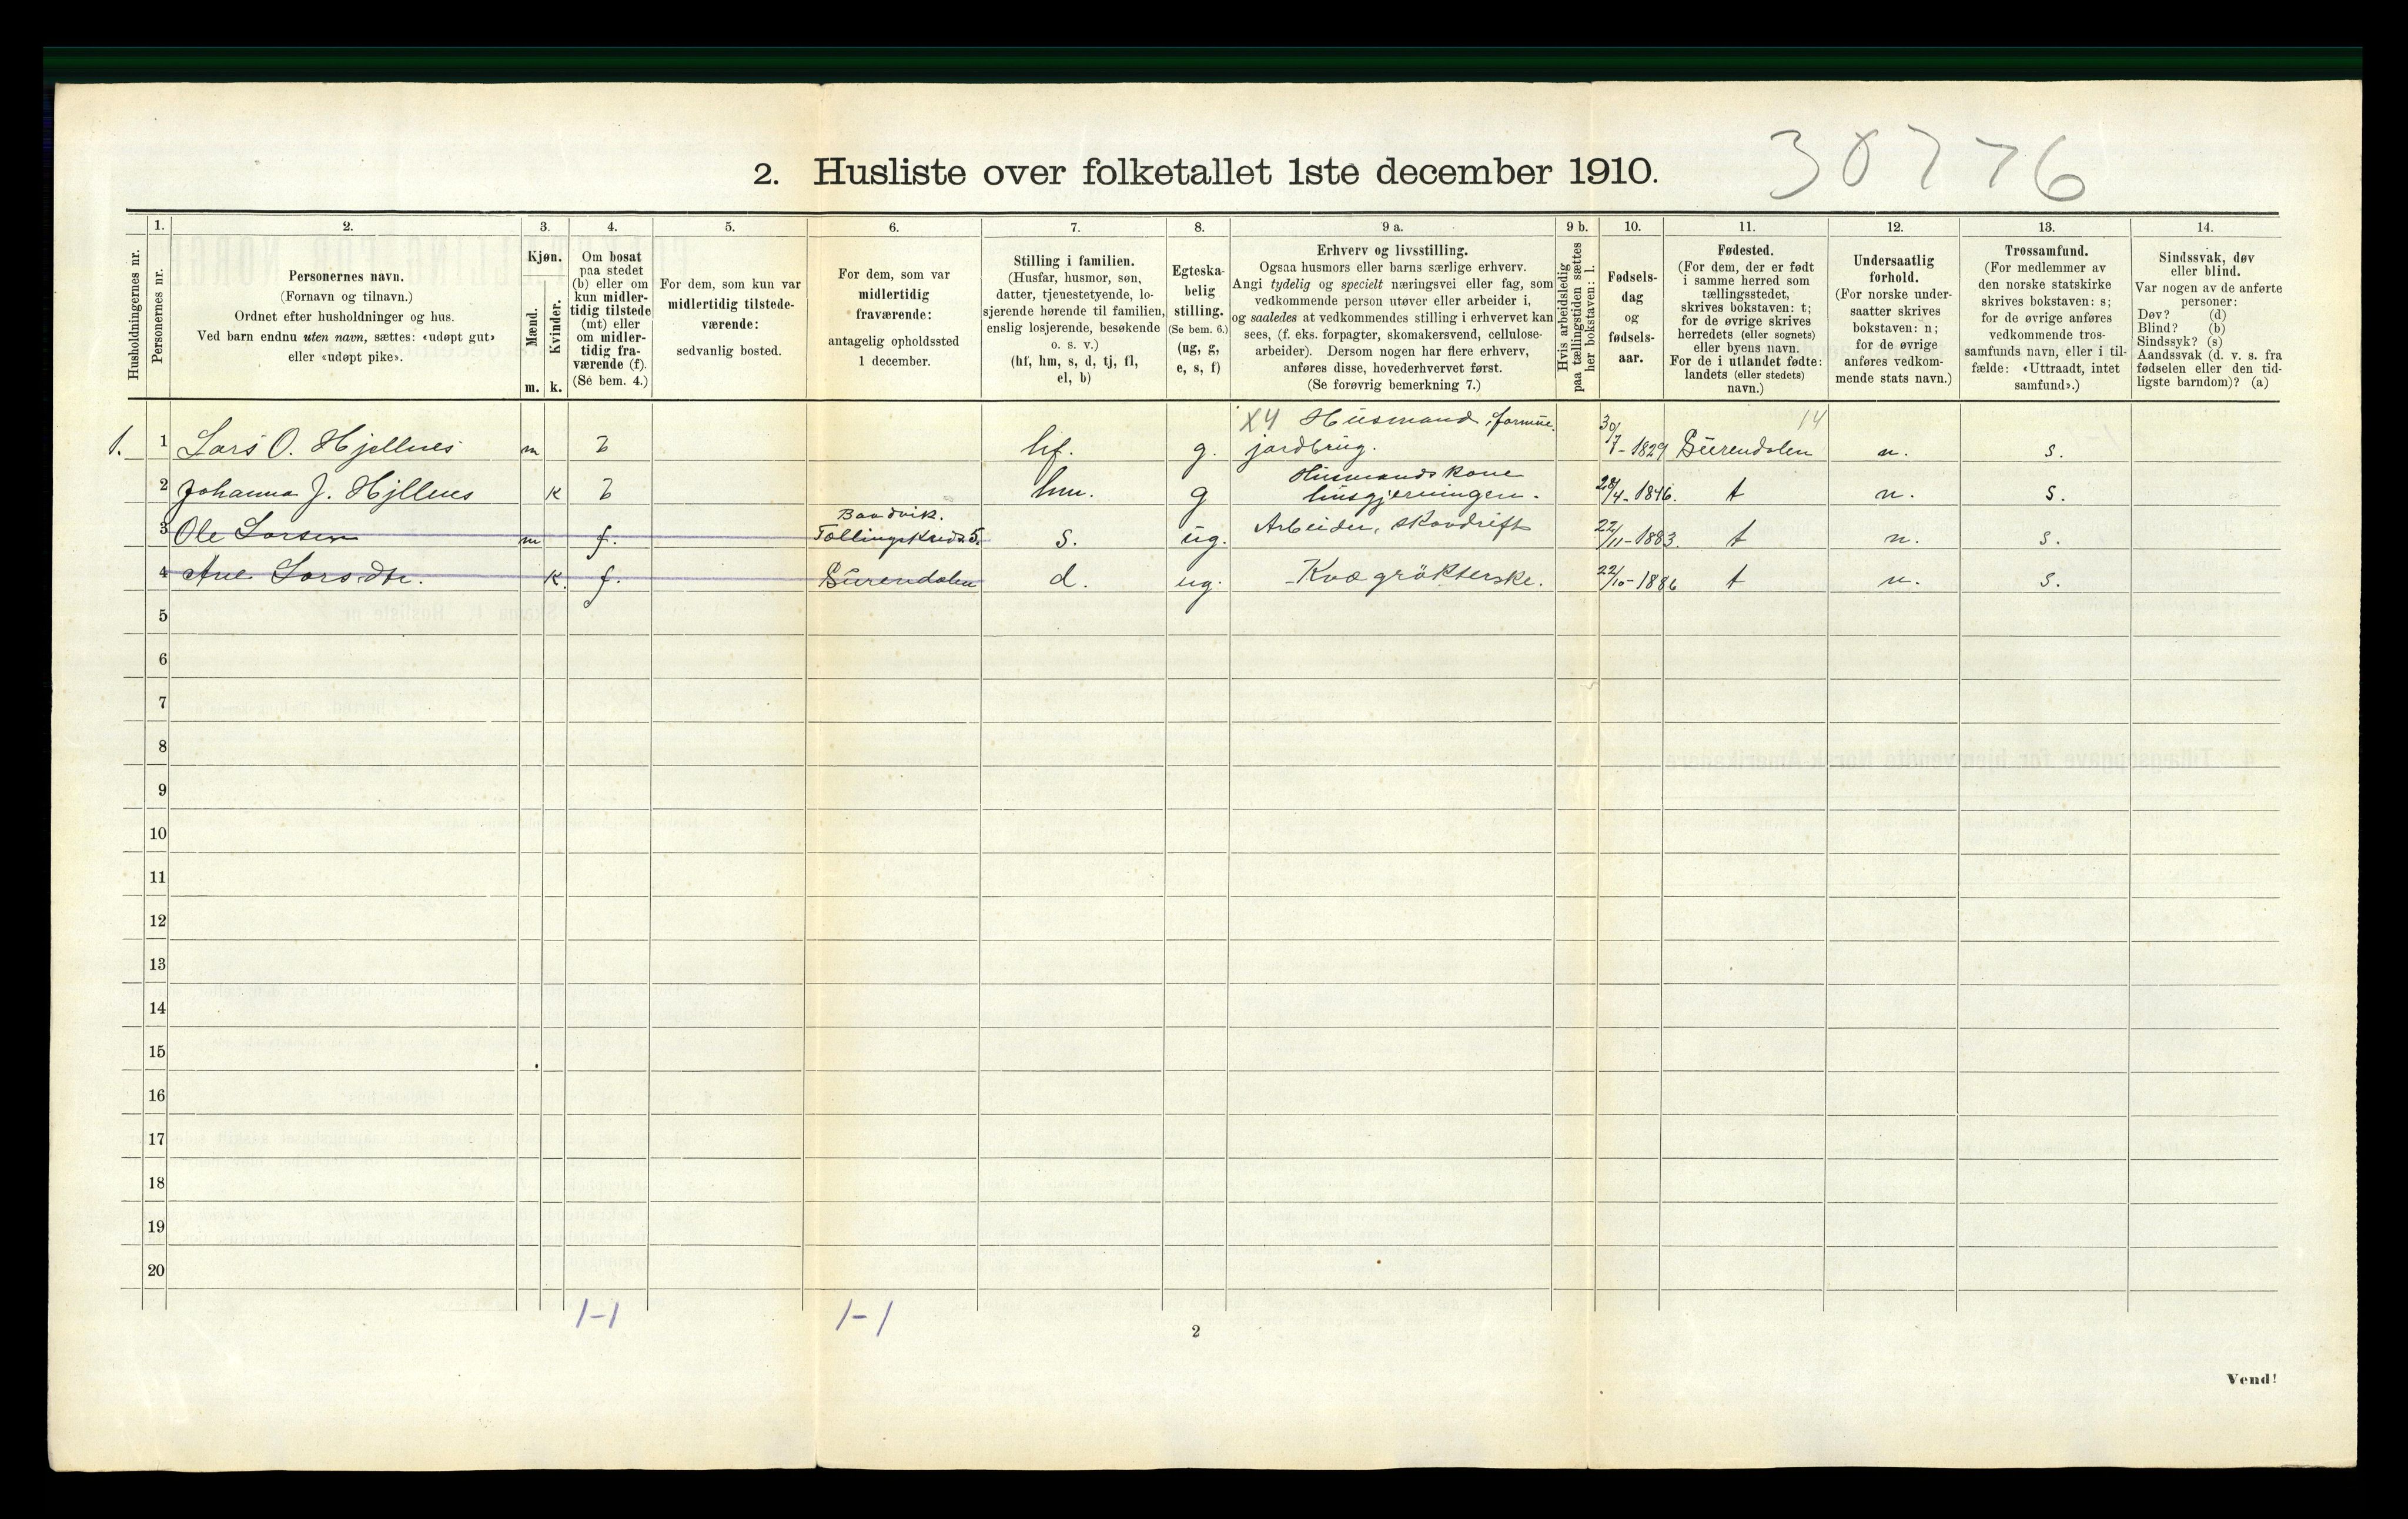 30776
2. Husliste over folketallet 1ste december 1910.
Husholdningernes nr.
1.
Personernes nr.
2.
Personernes navn.
(Fornavn og tilnavn.)
Ordnet efter husholdninger og hus.
Ved barn endnu uten navn, sættes: «udøpt gut»
eller «udøpt pike».
3.
Kjøn.
Mænd.
Kvinder.
m. k.
4.
Om bosat
paa stedet
(b) eller om
kun midler-
tidig tilstede
(mt) eller
om midler-
tidig fra-
værende (f).
(Se bem. 4.)
5.
For dem, som kun var
midlertidig tilstede-
værende:
sedvanlig bosted.
6.
For dem, som var
midlertidig
fraværende:
antagelig opholdssted
1 december.
7.
Stilling i familien.
(Husfar, husmor, søn,
datter, tjenestetyende, lo-
sjerende hørende til familien,
enslig losjerende, besøkende
o. s. v.)
(hf, hm, s, d, tj, fl,
el, b)
8.
Egteska-
belig
stilling.
(Se bem. 6.)
(ug, g,
e, s, f)
9 a.
Erhverv og livsstilling.
Ogsaa husmors eller barns særlige erhverv.
Angi tydelig og specielt næringsvei eller fag, som
vedkommende person utøver eller arbeider i,
og saaledes at vedkommendes stilling i erhvervet kan
sees, (f. eks. forpagter, skomakersvend, cellulose-
arbeider). Dersom nogen har flere erhverv,
anføres disse, hovederhvervet først.
(Se forøvrig bemerkning 7.)
9 b.
Hvis arbeidsledig
paa tællingstiden sættes
her bokstaven: l.
10.
Fødsels-
dag
og
fødsels-
aar.
11.
Fødested.
(For dem, der er født
i samme herred som
tællingsstedet,
skrives bokstaven: t;
for de øvrige skrives
herredets (eller sognets)
eller byens navn.
For de i utlandet fødte:
landets (eller stedets)
navn.)
12.
Undersaatlig
forhold.
(For norske under-
saatter skrives
bokstaven: n;
for de øvrige
anføres vedkom-
mende stats navn.)
13.
Trossamfund.
(For medlemmer av
den norske statskirke
skrives bokstaven: s;
for de øvrige anføres
vedkommende tros-
samfunds navn, eller i til-
fælde: «Uttraadt, intet
samfund».)
14.
Sindssvak, døv
eller blind.
Var nogen av de anførte
personer:
Døv? (d)
Blind? (b)
Sindssyk? (s)
Aandssvak (d. v. s. fra
fødselen eller den tid-
ligste barndom)? (a)
X4 Husmand, 14
1. 1 Lars O. Hjellnes m b hf. g. jordbrug. 30/7-1829 Surendalen n. s.
Husmandskone
2 Johanna J. Hjllnes k b hm. g husgjerningen. 28/4-1846. t n. s.
3 Ole Larsen m f. Tællingskreds 5. s. ug. Arbeider, skovdrift 22/11-1883. t n. s.
4 Ane Larsdtr. k. f. Surendalen d. ug. Kvægrøkterske. 22/10-1886 t n. s.
5
6
7
8
9
10
11
12
13
14
15
16
17
18
19
20
1-1 1-1
2
Vend!